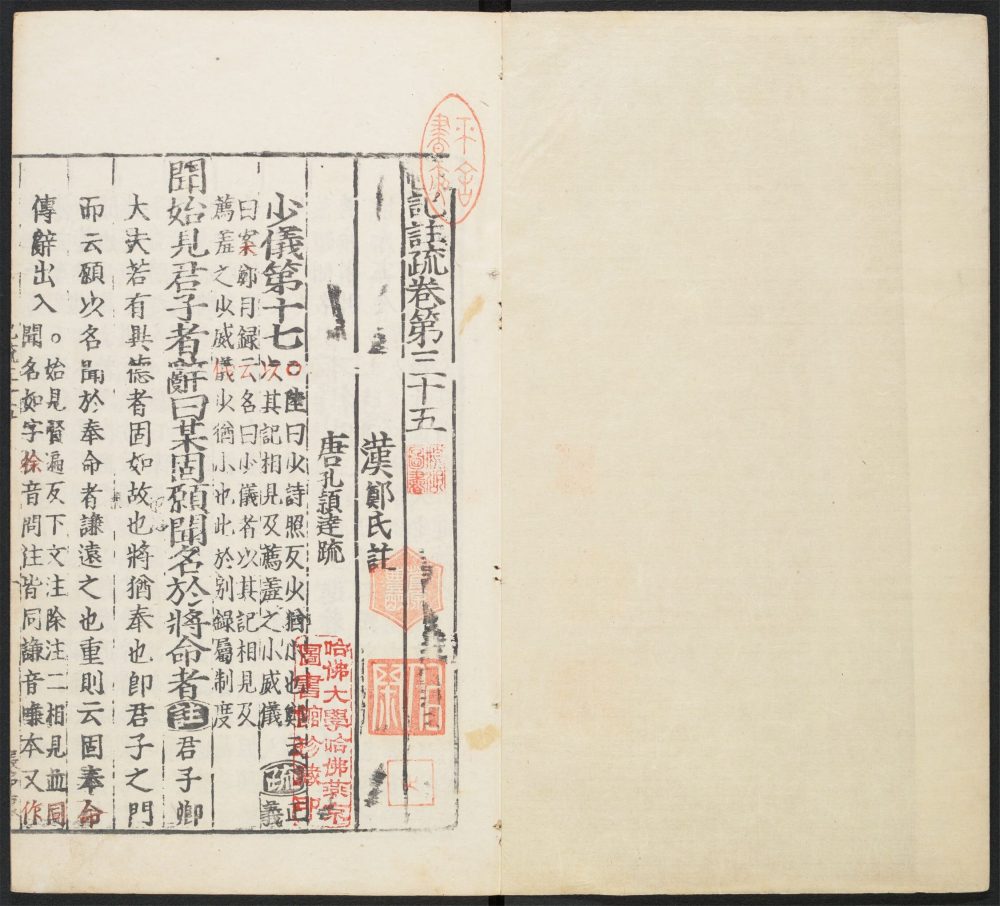 記註疏卷第三十五
漢鄭氏註
唐孔頴達疏
少儀第十七
○陸曰少詩照反少猶小也鄭云
以其記相見及薦羞之小威儀
疏
正義
曰案鄭目録云名曰少儀者以其記相見及
薦羞之少威儀少猶小也此於别錄屬制度
聞始見君子者辭曰某固願聞名於將命者註君子卿
大夫若有異德者固如故也將猶奉也即君子之門
而云願以名聞於奉命者謙遠之也重則云固奉命
傳辭出入
○始見賢遍反下文注除注二相見並同
聞名如字徐音問注皆同謙音嗛本又作
哈佛大學哈佛燕京
圖書館珍藏印